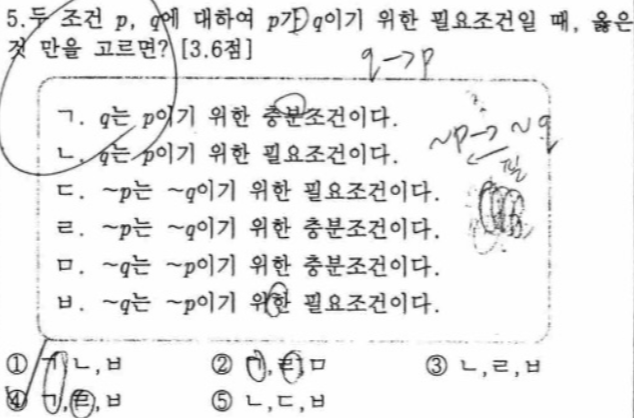 5.두 조건 p, q에 대하여 p가 q이기 위한 필요조건일 때, 옳은
것 만을 고르면? [3.6점]
q→p
ㄱ. q는 p이기 위한 충분조건이다.
ㄴ. q는 p이기 위한 필요조건이다.
~p→~q
ㄷ. ~p는 ~q이기 위한 필요조건이다.
ㄹ. ~p는 ~q이기 위한 충분조건이다.
ㅁ. ~q는 ~p이기 위한 충분조건이다.
ㅂ. ~q는 ~p이기 위한 필요조건이다.
① ㄱ,ㄴ,ㅂ ② ㄱ,ㄹ,ㅁ ③ ㄴ,ㄹ,ㅂ
④ ㄱ,ㄹ,ㅂ ⑤ ㄴ,ㄷ,ㅂ